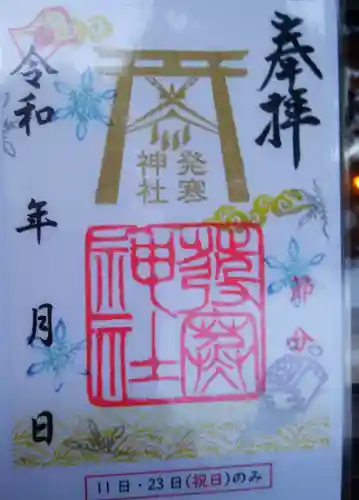 奉拝
発寒
神社
發寒
神社
令和
年
月
日
11日・23日(祝日)のみ